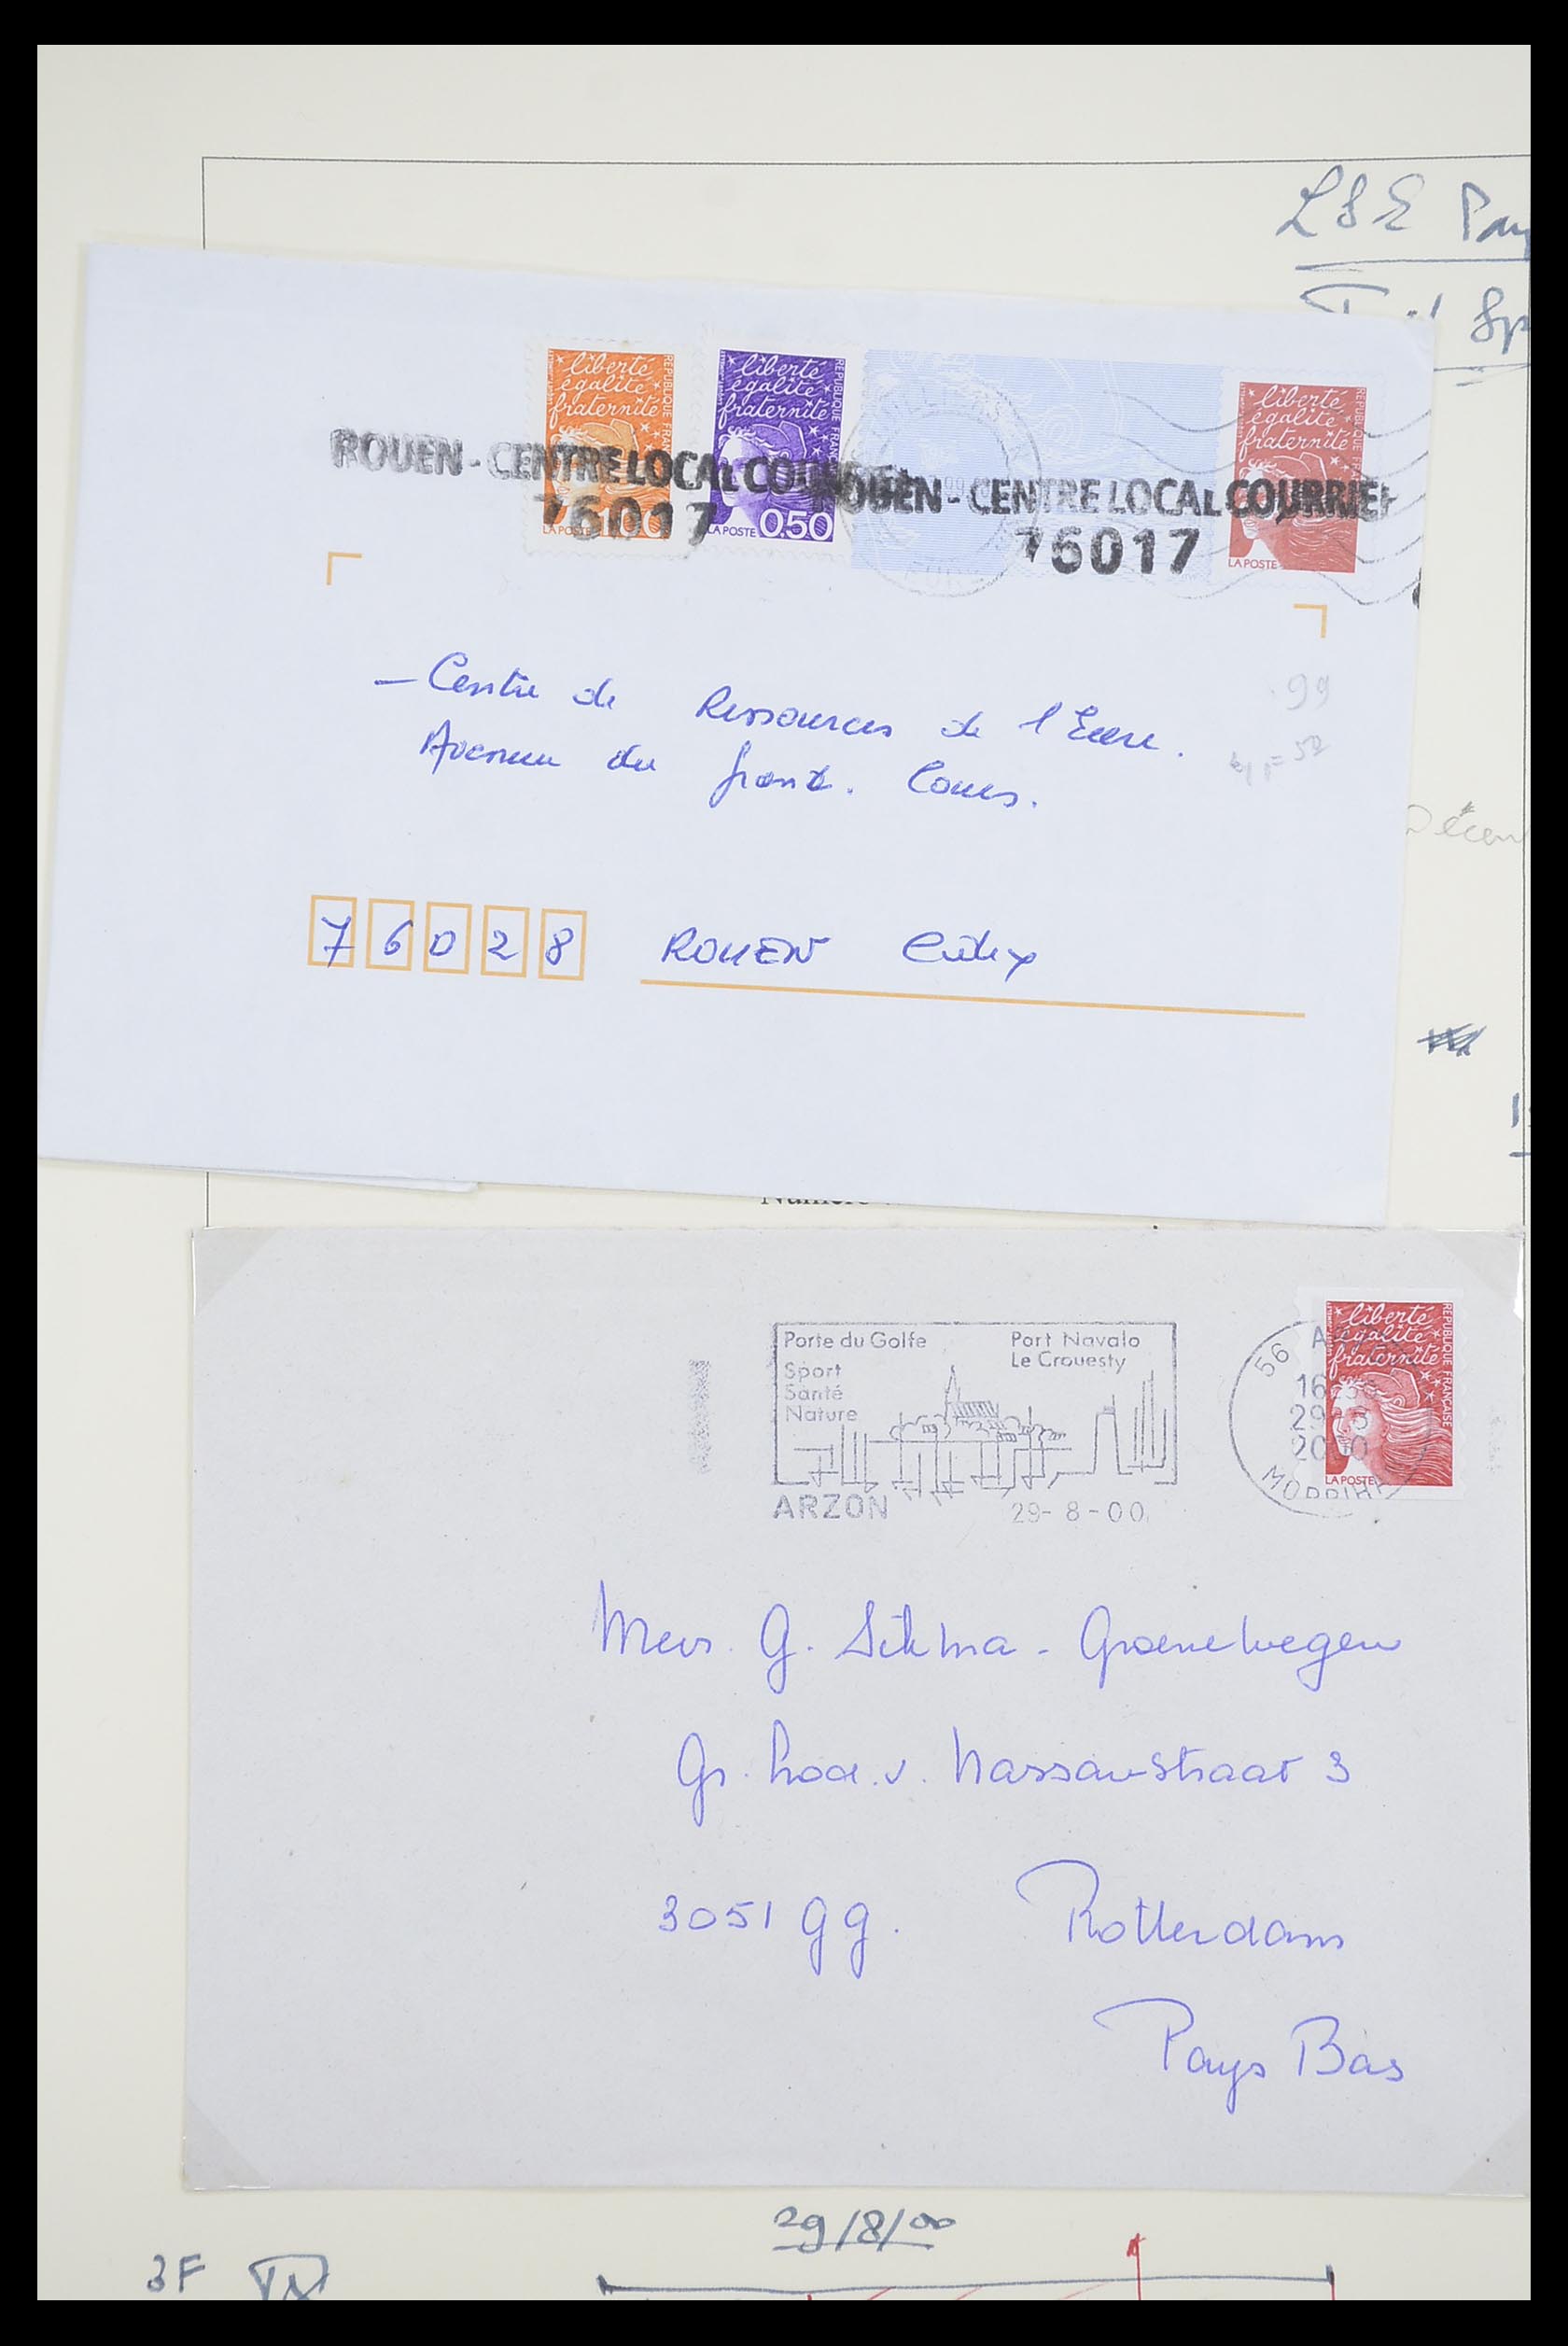 L & E Pay
liberté
égalité
fraternité
RÉPUBLIQUE FRANÇAISE
LA POSTE 1.00
liberté
égalité
fraternité
RÉPUBLIQUE FRANÇAISE
LA POSTE 0.50
liberté
égalité
fraternité
RÉPUBLIQUE FRANÇAISE
LA POSTE
ROUEN - CENTRE LOCAL COU
76017
ROUEN - CENTRE LOCAL COURRIER
76017
- Centre de Ressources de l'Eure.
Avenue du Cours.
99
Décem
76028 ROUEN Cedex
Porte du Golfe
Sport
Santé
Nature
Port Navalo
Le Crouesty
ARZON 29-8-00
56
16
29 8
2000
MORBIHAN
liberté
égalité
fraternité
RÉPUBLIQUE FRANÇAISE
LA POSTE
Mevr. G. Sikma - Groenewegen
Gr. Lod. v. Nassaustraat 3
3051 GG. Rotterdam
Pays Bas
29/8/00
3F